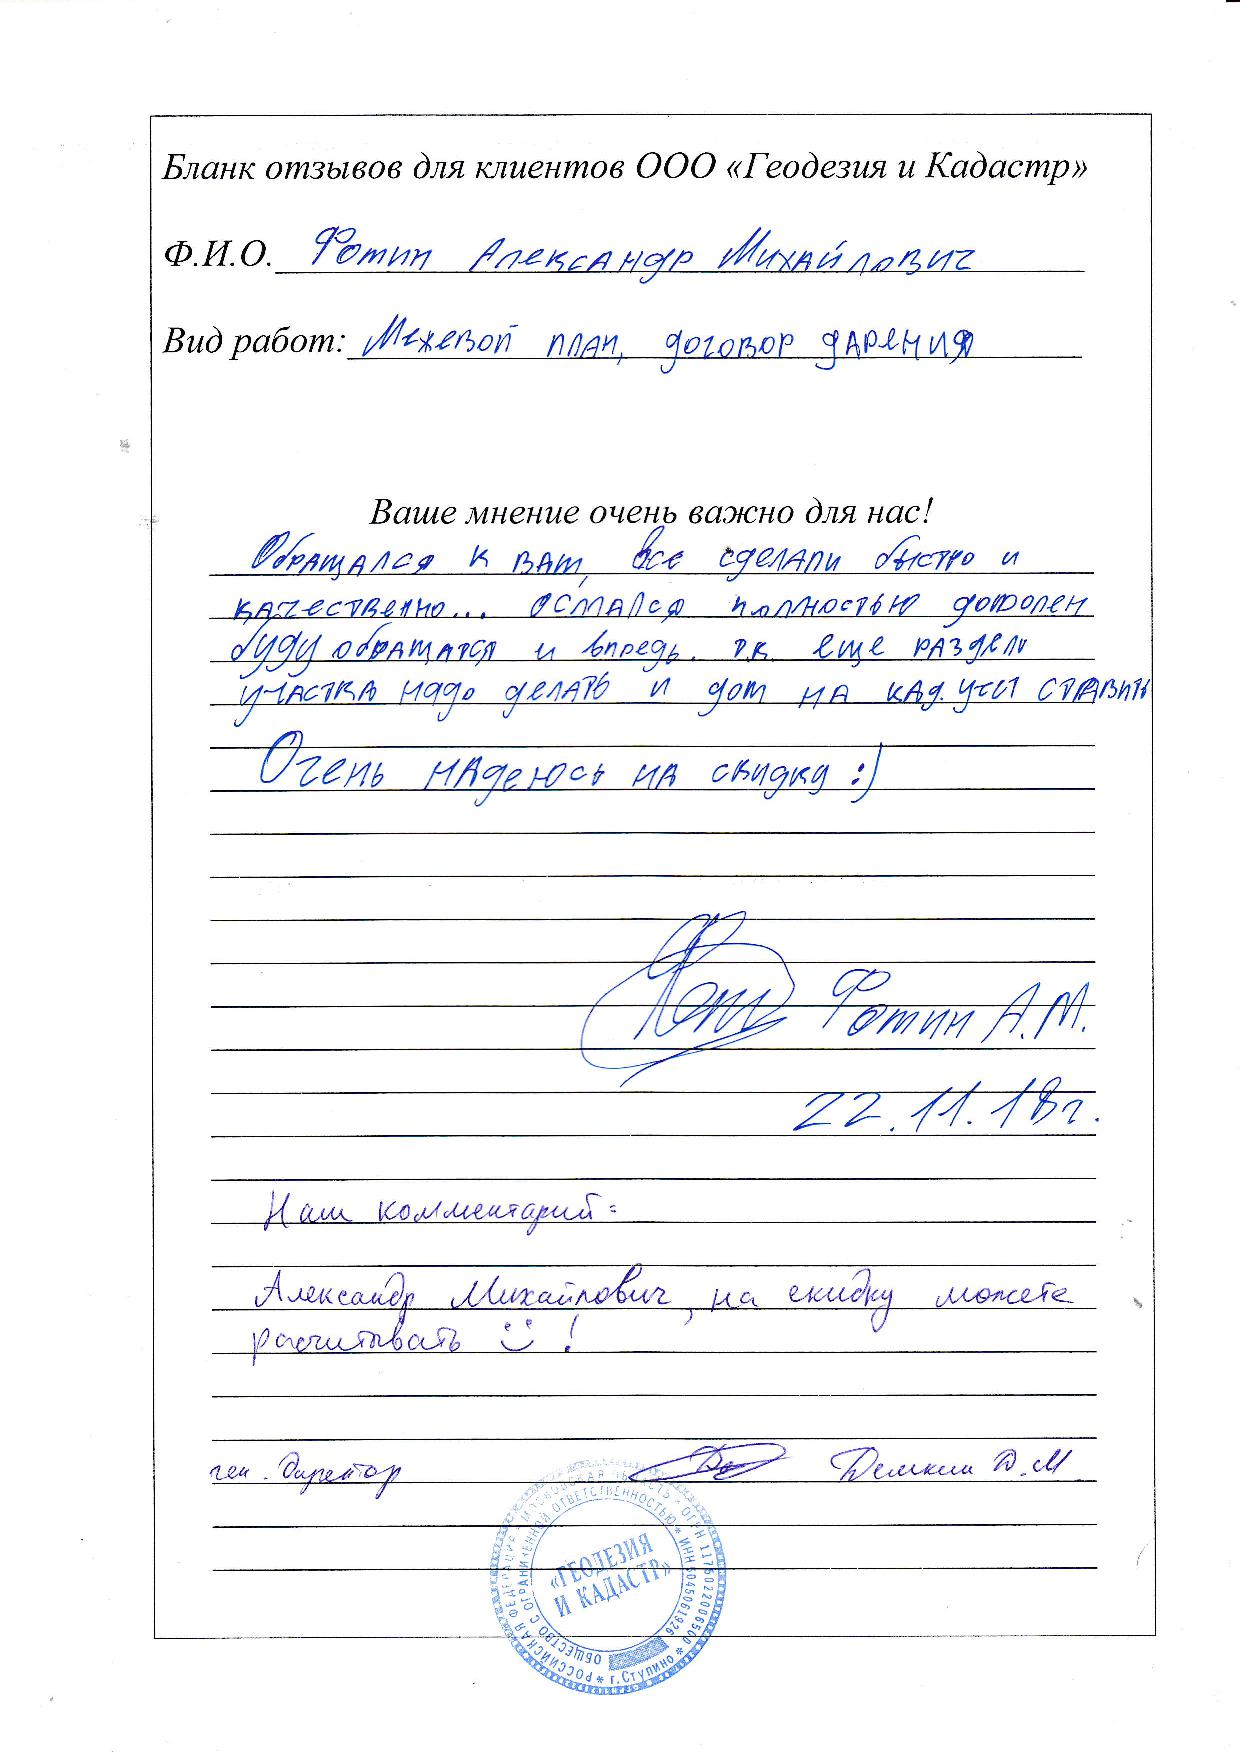 Бланк отзывов для клиентов ООО «Геодезия и Кадастр»
Ф.И.О. Фотин Александр Михайлович
Вид работ: Межевой план, договор дарения
Ваше мнение очень важно для нас!
Обращался к вам, все сделали быстро и
качественно... остался полностью доволен
буду обращатся и впредь. т.к. еще раздел
участка надо делать и дом на кад. учет ставить
Очень надеюсь на скидку :)
Фотин А.М.
22.11.18г.
Наш комментарий:
Александр Михайлович, на скидку можете
расчитывать !
ген. директор Демкин Д.М.
РОССИЙСКАЯ ФЕДЕРАЦИЯ * МОСКОВСКАЯ ОБЛАСТЬ * ОГРН 1175022006500 * г. Ступино *
ОБЩЕСТВО С ОГРАНИЧЕННОЙ ОТВЕТСТВЕННОСТЬЮ * ИНН 5045061926
«ГЕОДЕЗИЯ
И КАДАСТР»